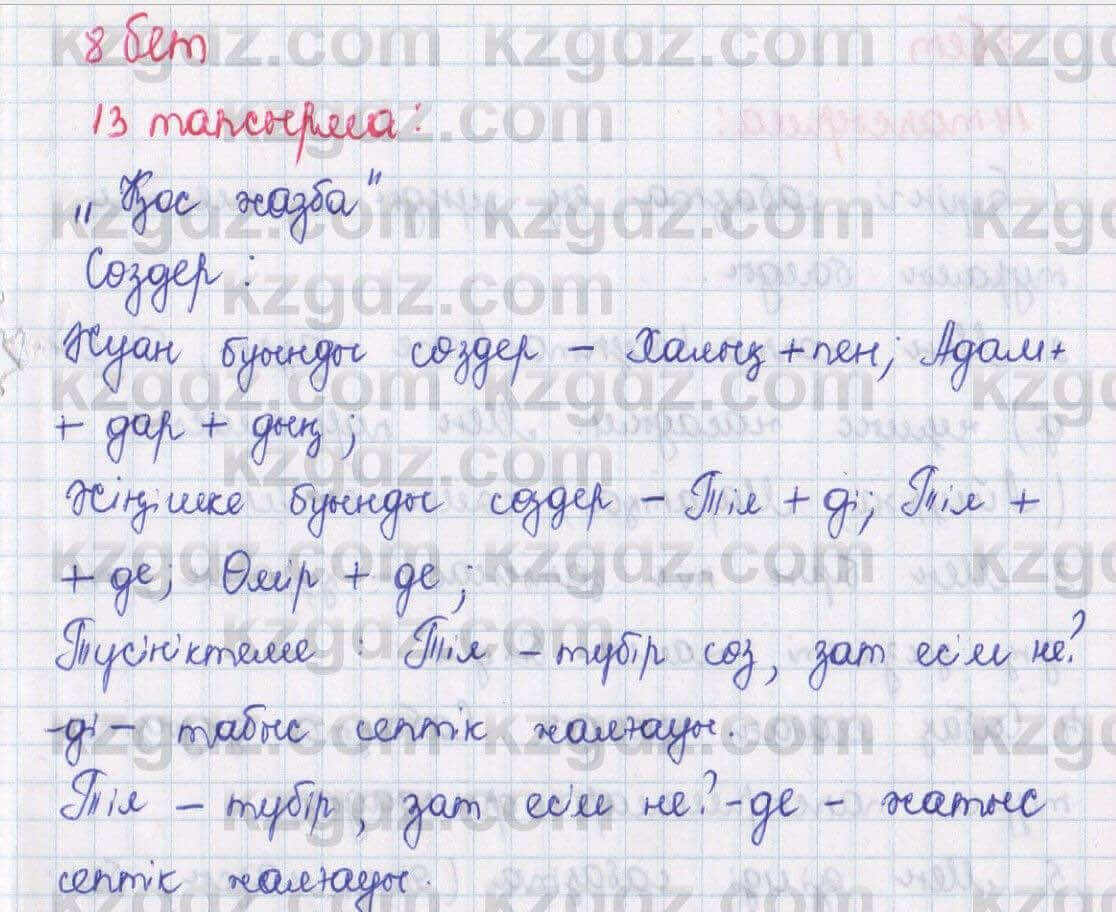 8 бет
13 тапсырма:
„Қос жазба"
Сөздер:
Жуан буынды сөздер – Халық+пен; Адам+
+ дар + дың;
Жіңішке буынды сөздер – Тіл + ді; Тіл +
+ де; Өмір + де;
Түсініктеме: Тіл – түбір сөз, зат есім не?
-ді – табыс септік жалғауы.
Тіл – түбір, зат есім не? -де – жатыс
септік жалғауы.
kzgdz.com